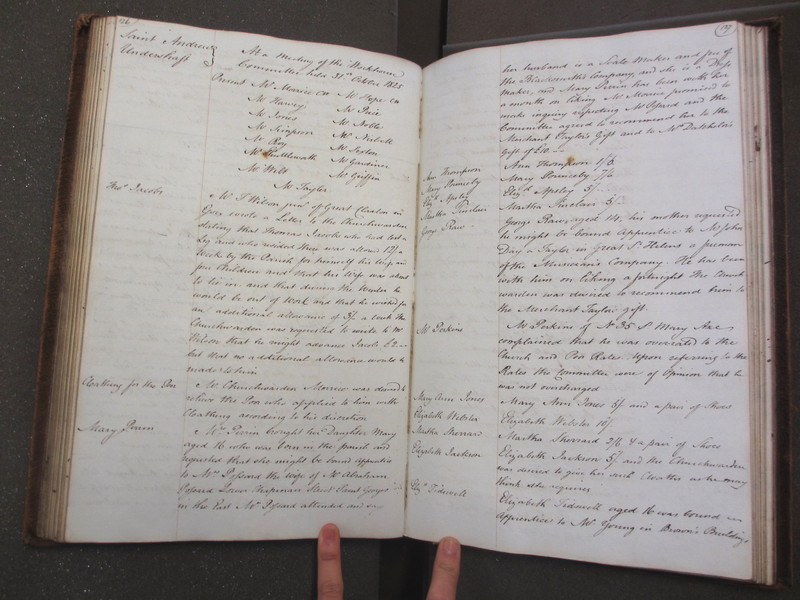 126
Saint Andrew
Undershaft
At a Meeting of the Workhouse
Committee held 31st October 1825
Present Mr Morrice CW Mr Pope CW
Mr Harvey Mr Pace
Mr Jones Mr Noble
Mr Simpson Mr Nisbett
Mr Ray Mr Sexton
Mr Shuttleworth Mr Gardiner
Mr Witt Mr Griffin
Mr Taylor
Thos Jacobs
Mr T Wilson junr of Great Clacton in
Essex wrote a Letter to the Churchwarden
stating that Thomas Jacobs who had lost a
Leg and who resided there was allowed 12/ a
Week by the Parish for himself his wife and
five Children and that his Wife was about
to lie in and that during the Winter he
would be out of Work and that he wished for
an additional allowance of 3/ a week the
Churchwarden was requested to write to Mr
Wilson that he might advance Jacobs £2 --
but that no additional allowance would be
made to him
Clothing for the Poor
Mr Churchwarden Morrice was desired to
relieve the Poor who applied to him with
Cloathing according to his discretion
Mary Perrin
Mrs Perrin brought her Daughter Mary
aged 16 who was born in the parish and
requested that she might be bound apprentice
to Mrs the wife of Mr Abraham
Lower Chapman Street Saint Georges
in the East Mrs attended and says
127
her husband is a Scale Maker and free of
the Blacksmiths Company, and she is a Dress
Maker, and Mary Perrin has been with her
a month on liking Mr Morrice promised to
make inquiry respecting and the
Committee agreed to recommend her to the
Merchant Taylors Gift and to Mr Datchelor's
Gift of
Ann Thompson Ann Thompson
Mary Pomnesby Mary Pomnesby
Elizth Apsley Elizth Apsley 5/--
Martha Sinclair Martha Sinclair 5/--
George Raw George Raw, aged 14, his mother requested
he might be bound Apprentice to Mr John
Day a Taylor in Great St Helens a freeman
of the Musicians Company. He has been
with him on liking a fortnight The Church
warden was desired to recommend him to
the Merchant Taylors gift
Mr Perkins Mr Perkins of No 35 St Mary Axe
complained that he was overrated to the
Church and Poor Rates Upon referring to the
Rates the Committee were of Opinion that he
was not overcharged
Mary Ann Jones Mary Ann Jones 5/ and a pair of Shoes
Elizabeth Webster Elizabeth Webster 10/.
Martha Sherrard Martha Sherrard 2/6 & a pair of Shoes
Elizabeth Jackson Elizabeth Jackson 5/ and the Churchwarden
was desired to give her such Cloaths as he may
think she requires
Elizth Tidswell Elizabeth Tidswell aged 16 was bound an
Apprentice to Mr Young in Brown's Buildings